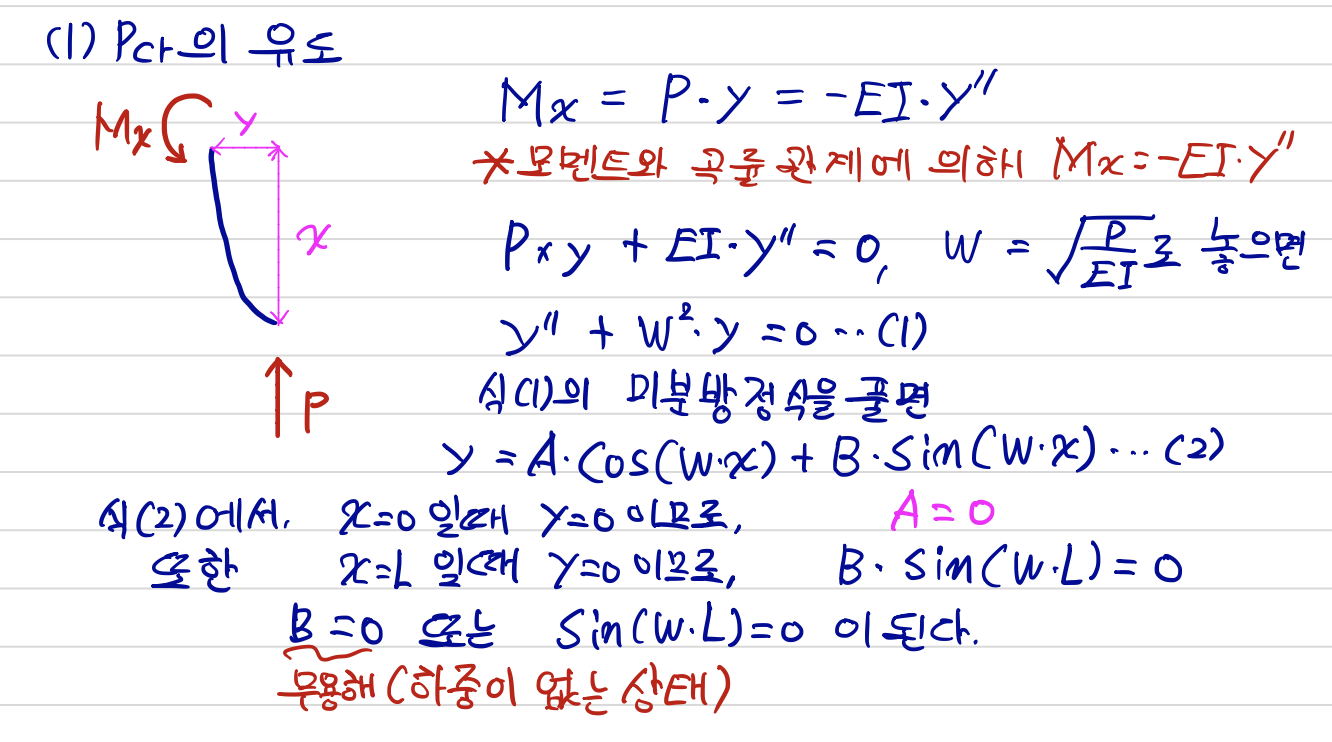 (1) Pcr의 유도
Mx = P·y = -EI·y''
Mx
y
*모멘트와 곡률관계에 의하 Mx=-EI·y''
x
P×y + EI·y'' = 0, W = √(P/EI)로 놓으면
y'' + W²·y = 0 ··· (1)
P
식(1)의 미분방정식을 풀면
y = A·Cos(W·x) + B·Sin(W·x) ··· (2)
식(2)에서, x=0 일때 y=0 이므로, A = 0
또한 x=L 일때 y=0 이므로, B·Sin(W·L) = 0
B=0 또는 Sin(W·L)=0 이 된다.
무용해(하중이 없는 상태)